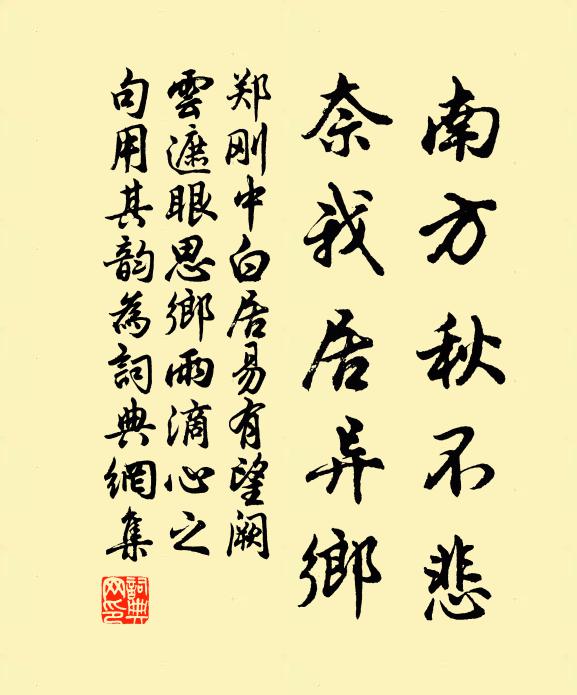 南方秋不悲
奈我居异鄉
郑刚中白居易有望阙
雲遮眼思鄉雨滴心之
句用其韵為詞典網集
詞典網印